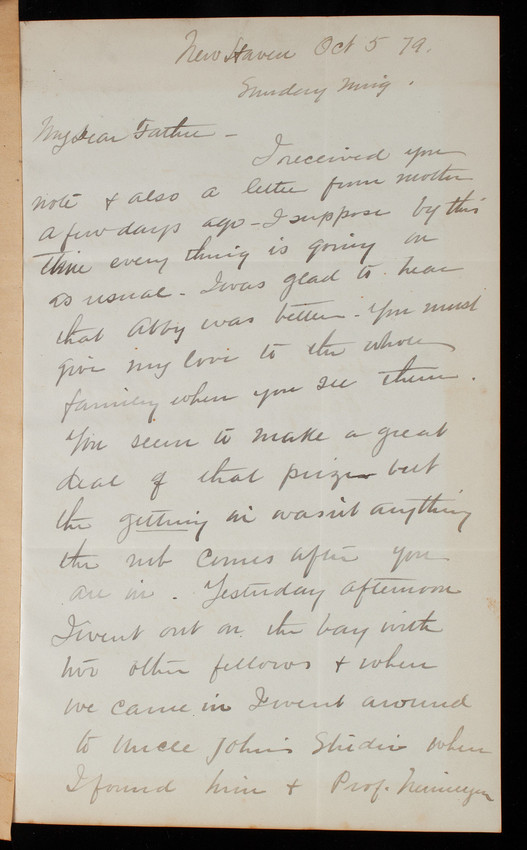 New Haven Oct 5 79.
Sunday Mnig.
My Dear Father –
I received your
note & also a letter from mother
a few days ago – I suppose by this
time every thing is going on
as usual – I was glad to hear
that Abby was better. You must
give my love to the whole
family when you see them.
You seem to make a great
deal of that prize but
the getting in wasn't anything
the rub comes after you
are in. Yesterday afternoon
I went out on the bay with
two other fellows & when
we came in I went around
to Uncle John's Studio when
I found him & Prof. Niemeyer